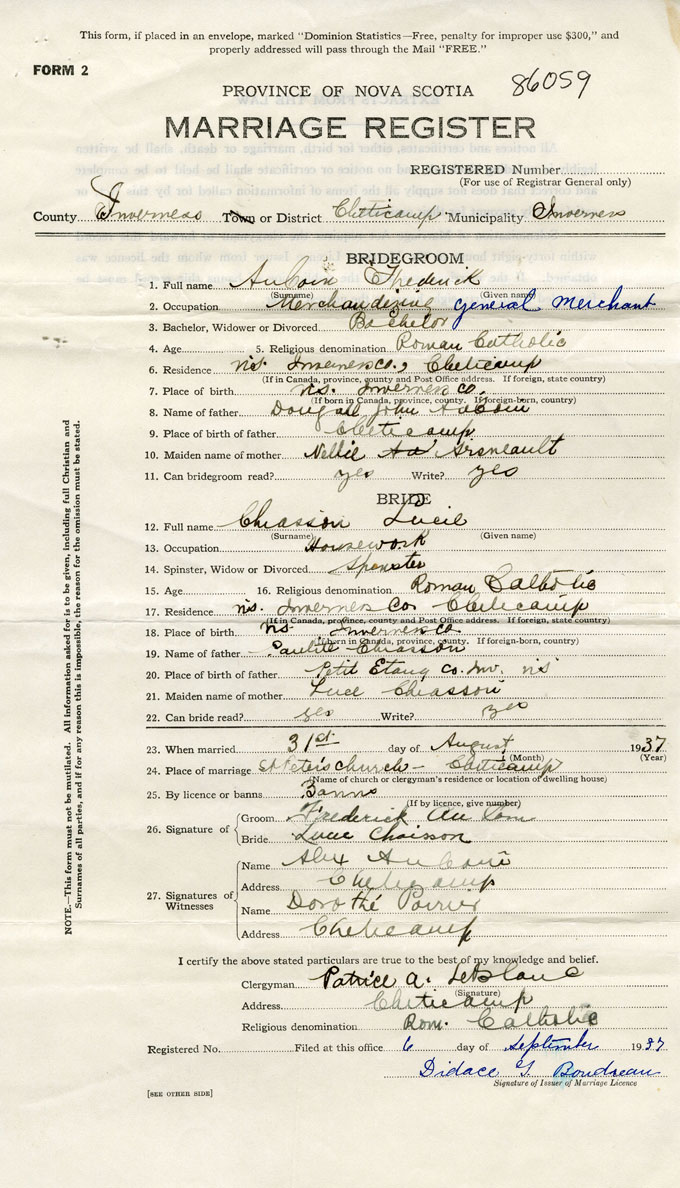 This form, if placed in an envelope, marked "Dominion Statistics—Free, penalty for improper use $300," and
properly addressed will pass through the Mail "FREE."
FORM 2
86059
PROVINCE OF NOVA SCOTIA
MARRIAGE REGISTER
REGISTERED Number
(For use of Registrar General only)
County Inverness Town or District Cheticamp Municipality Inverness
BRIDEGROOM
1. Full name AuCoin Frederick
(Surname) (Given name)
2. Occupation Merchandizing general merchant
3. Bachelor, Widower or Divorced Bachelor
4. Age 5. Religious denomination Roman Catholic
6. Residence N.S. Inverness Co., Cheticamp
(If in Canada, province, county and Post Office address. If foreign, state country)
7. Place of birth N.S. Inverness Co.
(If born in Canada, province, county. If foreign-born, country)
8. Name of father Dougall John AuCoin
9. Place of birth of father Cheticamp
10. Maiden name of mother Nellie Arseneault
11. Can bridegroom read? yes Write? yes
BRIDE
12. Full name Chiasson Lucie
(Surname) (Given name)
13. Occupation Housework
14. Spinster, Widow or Divorced Spinster
15. Age 16. Religious denomination Roman Catholic
17. Residence N.S. Inverness Co Cheticamp
(If in Canada, province, county and Post Office address. If foreign, state country)
18. Place of birth N.S. Inverness Co.
(If born in Canada, province, county. If foreign-born, country)
19. Name of father Chiasson
20. Place of birth of father Petit Etang Co. Inv. N.S
21. Maiden name of mother Luce Chiasson
22. Can bride read? yes Write? yes
23. When married 31st day of August 1937
(Month) (Year)
24. Place of marriage St Peters church - Cheticamp
(Name of church or clergyman's residence or location of dwelling house)
25. By licence or banns Banns
(If by licence, give number)
26. Signature of Groom Frederick Au Coin
Bride Lucie Chaisson
27. Signatures of Witnesses Name Alex Au Coin
Address Cheticamp
Name Dorothé Poirier
Address Cheticamp
I certify the above stated particulars are true to the best of my knowledge and belief.
Clergyman Patrice A. LeBlanc
(Signature)
Address Cheticamp
Religious denomination Rom. Catholic
Registered No. Filed at this office 6 day of September 1937
Didace G Boudreau
Signature of Issuer of Marriage Licence
[SEE OTHER SIDE]
NOTE.—This form must not be mutilated. All information asked for is to be given, including full Christian and
Surnames of all parties, and if for any reason this is impossible, the reason for the omission must be stated.